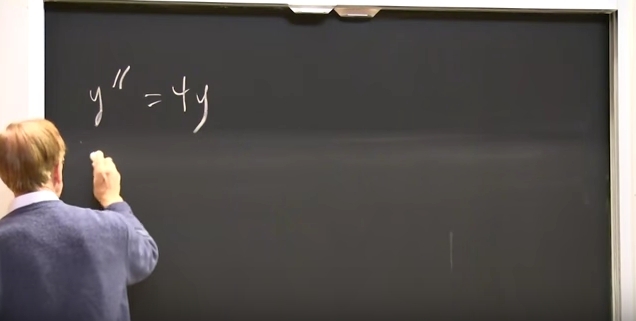 y'' = 4y